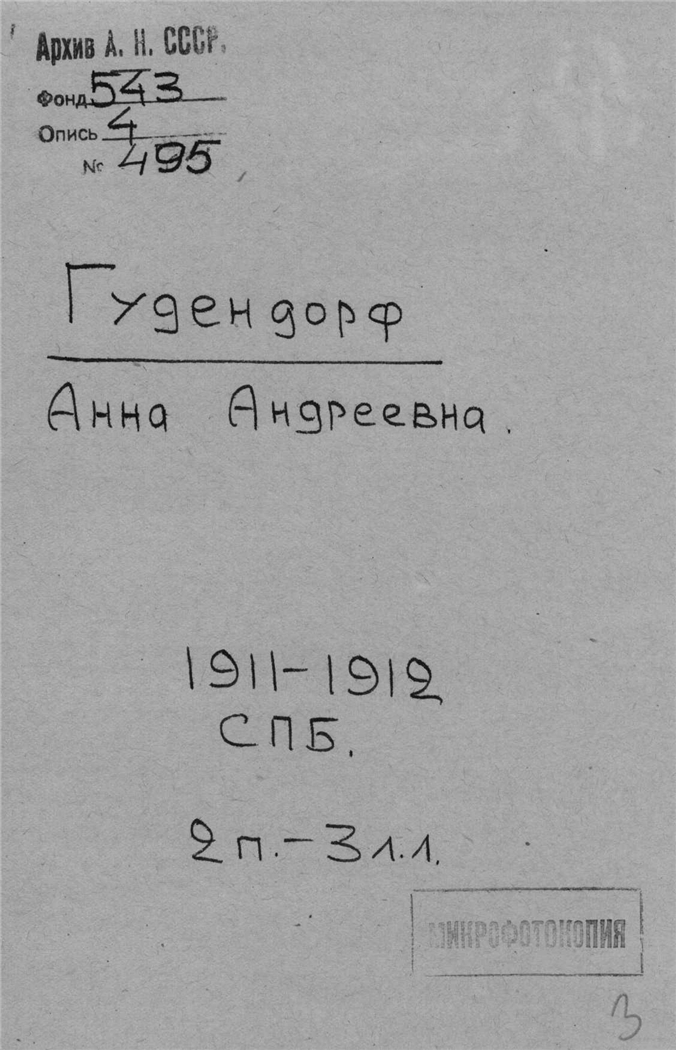 Архив А. Н. СССР.
Фонд 543
Опись 4
№ 495
Гудендорф
Анна Андреевна.
1911-1912
СПБ.
2 п. - 3 л.л.
МИКРОФОТОКОПИЯ
3